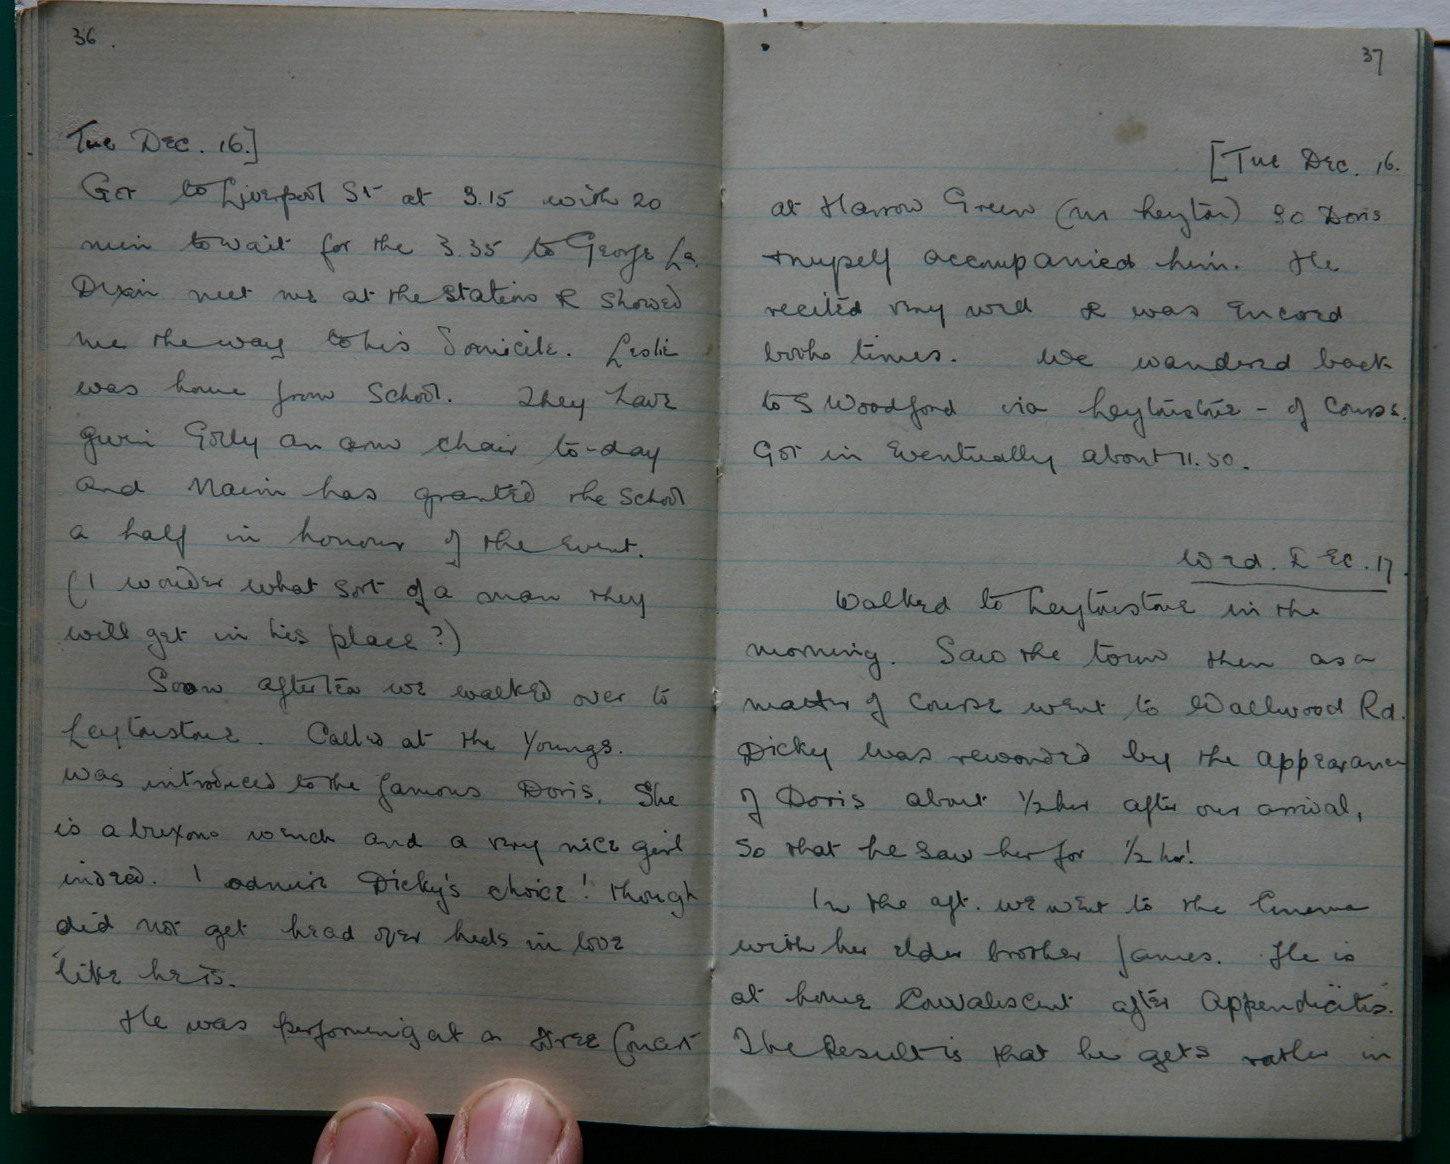 36.
Tue Dec. 16.]
Got to Liverpool St at 3.15 with 20
min to wait for the 3.35 to George La.
Dixin meet me at the station & showed
me the way to his Domicile. Leslie
was home from School. They have
given Golly an arm chair to-day
and Naim has granted the School
a half in honour of the Event.
(I wonder what sort of a man they
will get in his place?)
Soon after tea we walked over to
Leytonstone. Called at the Youngs.
was introduced to the famous Doris. She
is a buxome wench and a very nice girl
indeed. I admire Dicky's choice! though
did not get head over heels in love
like he is.
He was performing at a Free Concert
37
[Tue Dec. 16.
at Harrow Green (nr Leyton) so Doris
+ myself accompanied him. He
recited very well & was Encord
both times. We wandered back
to S Woodford via Leytonstone - of Course.
Got in Eventually about 11.50.
Wed. DEC. 17.
Walked to Leytonstone in the
morning. Saw the town then as a
matter of Course went to Wallwood Rd.
Dicky was rewarded by the appearance
of Doris about 1/2 hr after our arrival,
so that he saw her for 1/2 hr!
In the aft. we went to the Cinema
with her elder brother James. He is
at home Convalescent after Appendicitis.
The Result is that he gets rather in